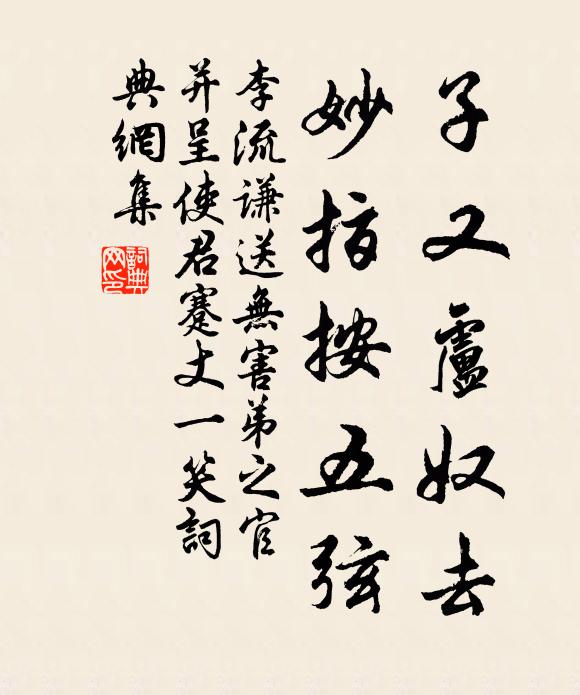 子又盧奴去
妙指按五弦
李流謙送無害弟之官
并呈使君蹇丈一笑詞
典網集
詞典網印